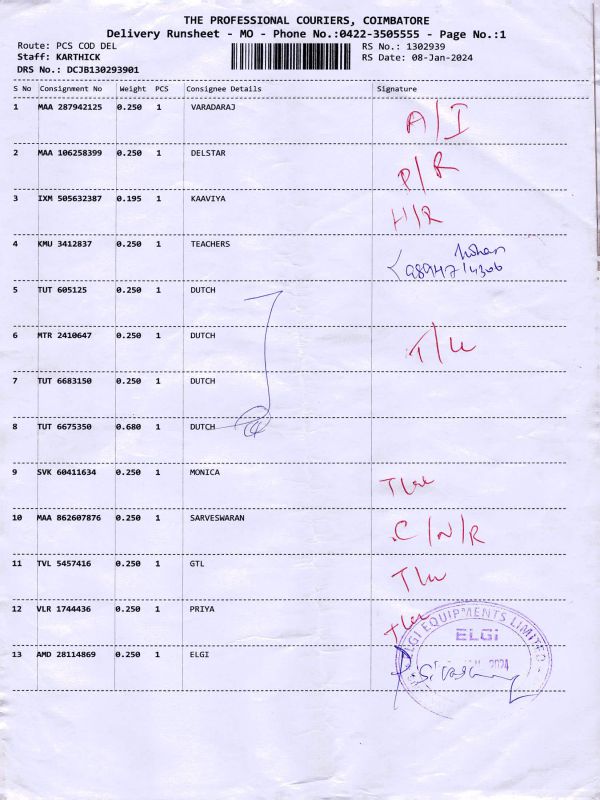 THE PROFESSIONAL COURIERS, COIMBATORE
Delivery Runsheet - MO - Phone No.:0422-3505555 - Page No.:1
Route: PCS COD DEL RS No.: 1302939
Staff: KARTHICK RS Date: 08-Jan-2024
DRS No.: DCJB130293901
S No Consignment No Weight PCS Consignee Details Signature
1 MAA 287942125 0.250 1 VARADARAJ A/I
2 MAA 106258399 0.250 1 DELSTAR P/R
3 IXM 505632387 0.195 1 KAAVIYA H/R
4 KMU 3412837 0.250 1 TEACHERS
5 TUT 605125 0.250 1 DUTCH
6 MTR 2410647 0.250 1 DUTCH
7 TUT 6683150 0.250 1 DUTCH
8 TUT 6675350 0.680 1 DUTCH
9 SVK 60411634 0.250 1 MONICA
10 MAA 862607876 0.250 1 SARVESWARAN C/N/R
11 TVL 5457416 0.250 1 GTL
12 VLR 1744436 0.250 1 PRIYA
13 AMD 28114869 0.250 1 ELGI
ELGI EQUIPMENTS LIMITED
ELGi
2024